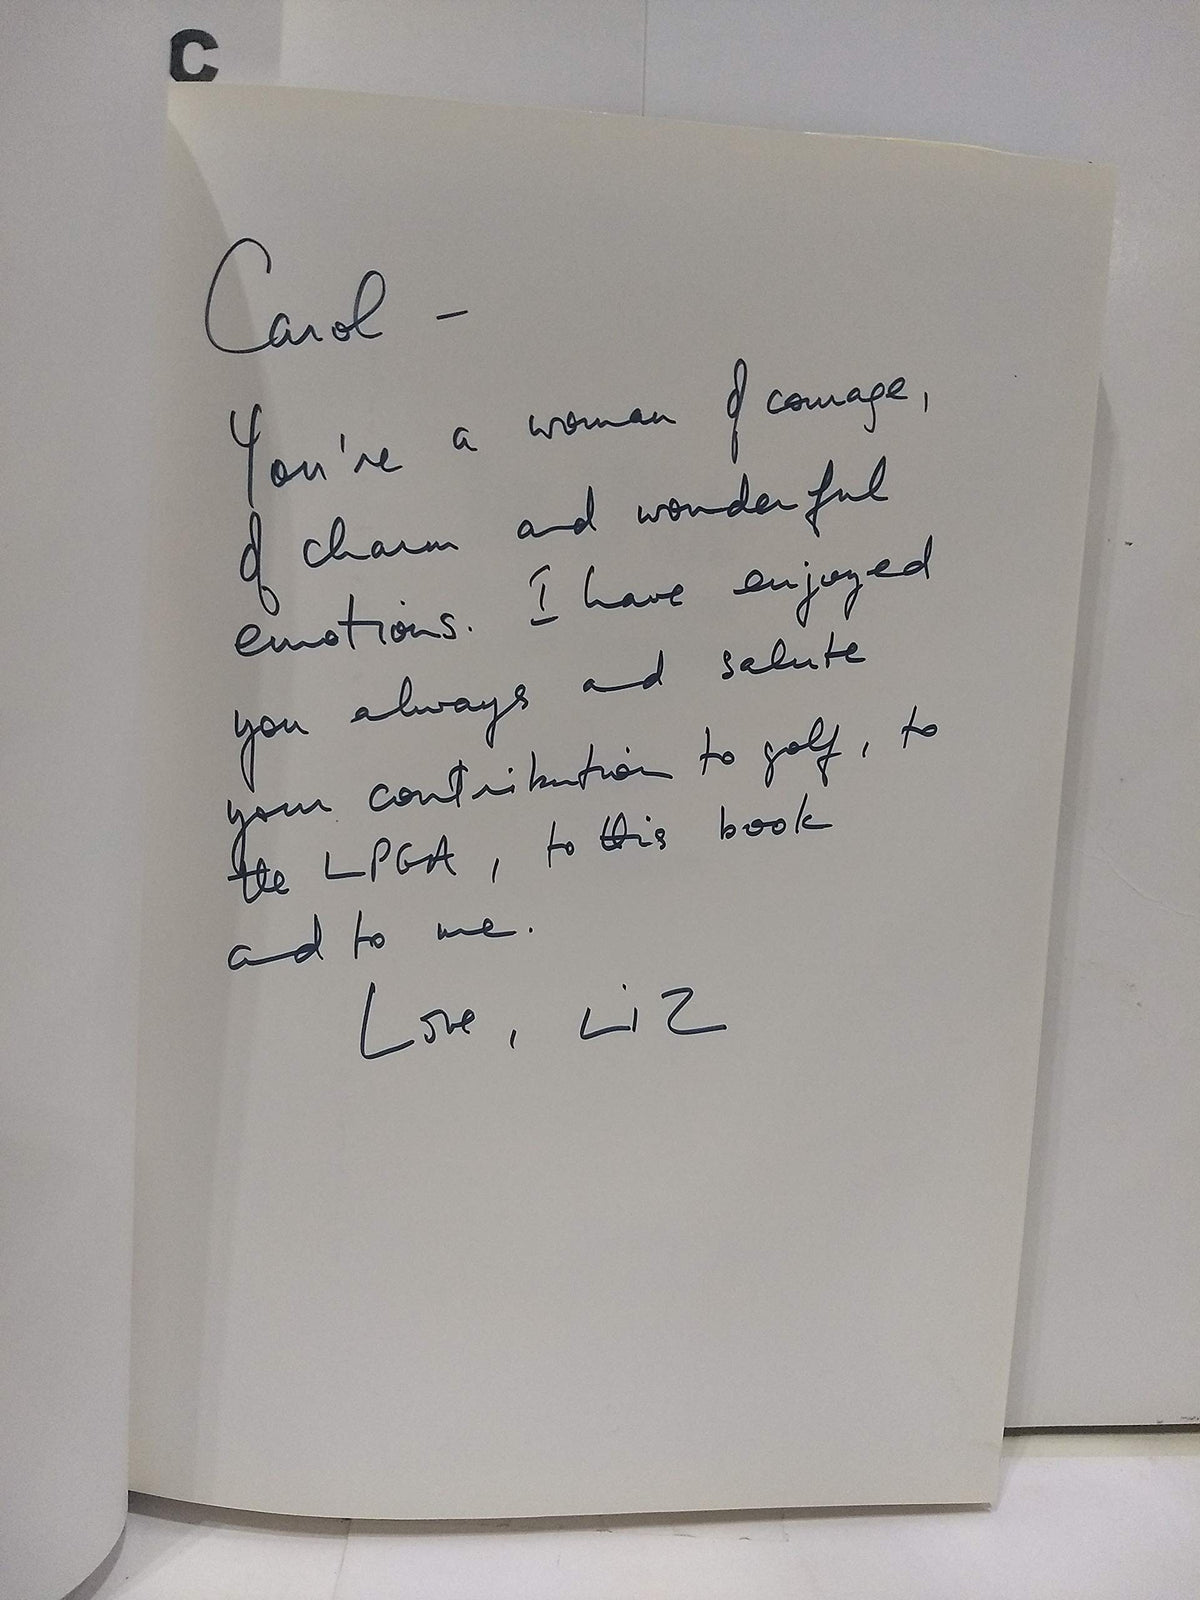 C
Carol –
You're a woman of courage,
of charm and wonderful
emotions. I have enjoyed
you always and salute
your contribution to golf, to
the LPGA, to this book
and to me.
Love, Liz